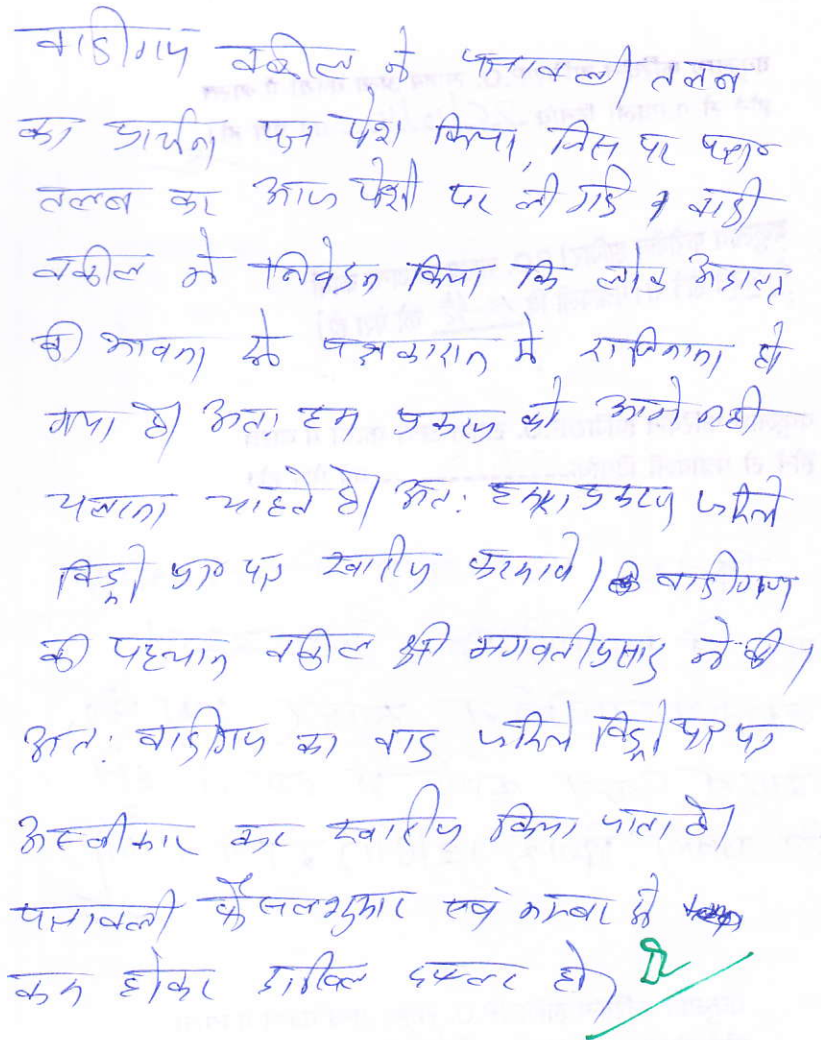 वादीगण वकील ने पत्रावली तलब
का प्रार्थना पत्र पेश किया, जिस पर पत्रा०
तलब कर आज पेशी पर ली गई। वादी
वकील ने निवेदन किया कि लोक अदालत
की भावना से पक्षकारान में राजीनामा हो
गया है। अतः हम प्रकरण को आगे नही
चलाना चाहते है। अतः हमारा प्रकरण जरिये
विड्रो प्रा० पत्र खारीज फरमावे। वादीगण
की पहचान वकील श्री भगवतीप्रसाद ने की।
अतः वादीगण का वाद जरिये विड्रो प्रा० पत्र
अस्वीकार कर खारीज किया जाता है।
पत्रावली फैसलशुमार एवं नम्बर से
कम होकर दाखिल दफ्तर हो।